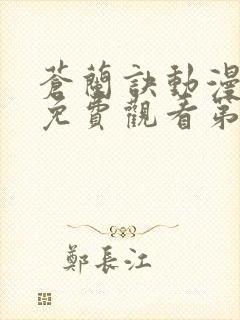 蒼蘭訣動漫
免費觀看第
鄭長江